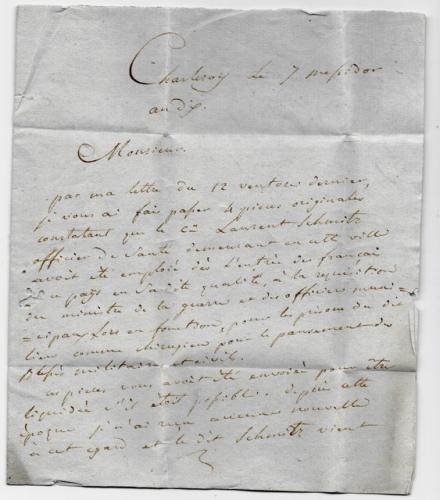 Charleroy le 7 messidor
an dix.
Monsieur.
par ma lettre du 12 ventose dernier,
je vous ai fais passer 4 pieces originales
constatant que le Cn Laurent Schmitz
officier de Santé demeurant en cette ville
avoit été employé dès l'entrée des français
au pays en sa dite qualité, à la requisition
du ministre de la guerre et des officiers muni=
=cipaux lors en fonction, pour la prison du dit
lieu comme chirurgien pour le pansement des
blessés militaires et civil.
ces pieces vous avoit été envoiée pour être
liquidée s'il étoit possible. depuis cette
époque je n'ai reçu aucune nouvelle
a cet egard et le dit Schmitz vient